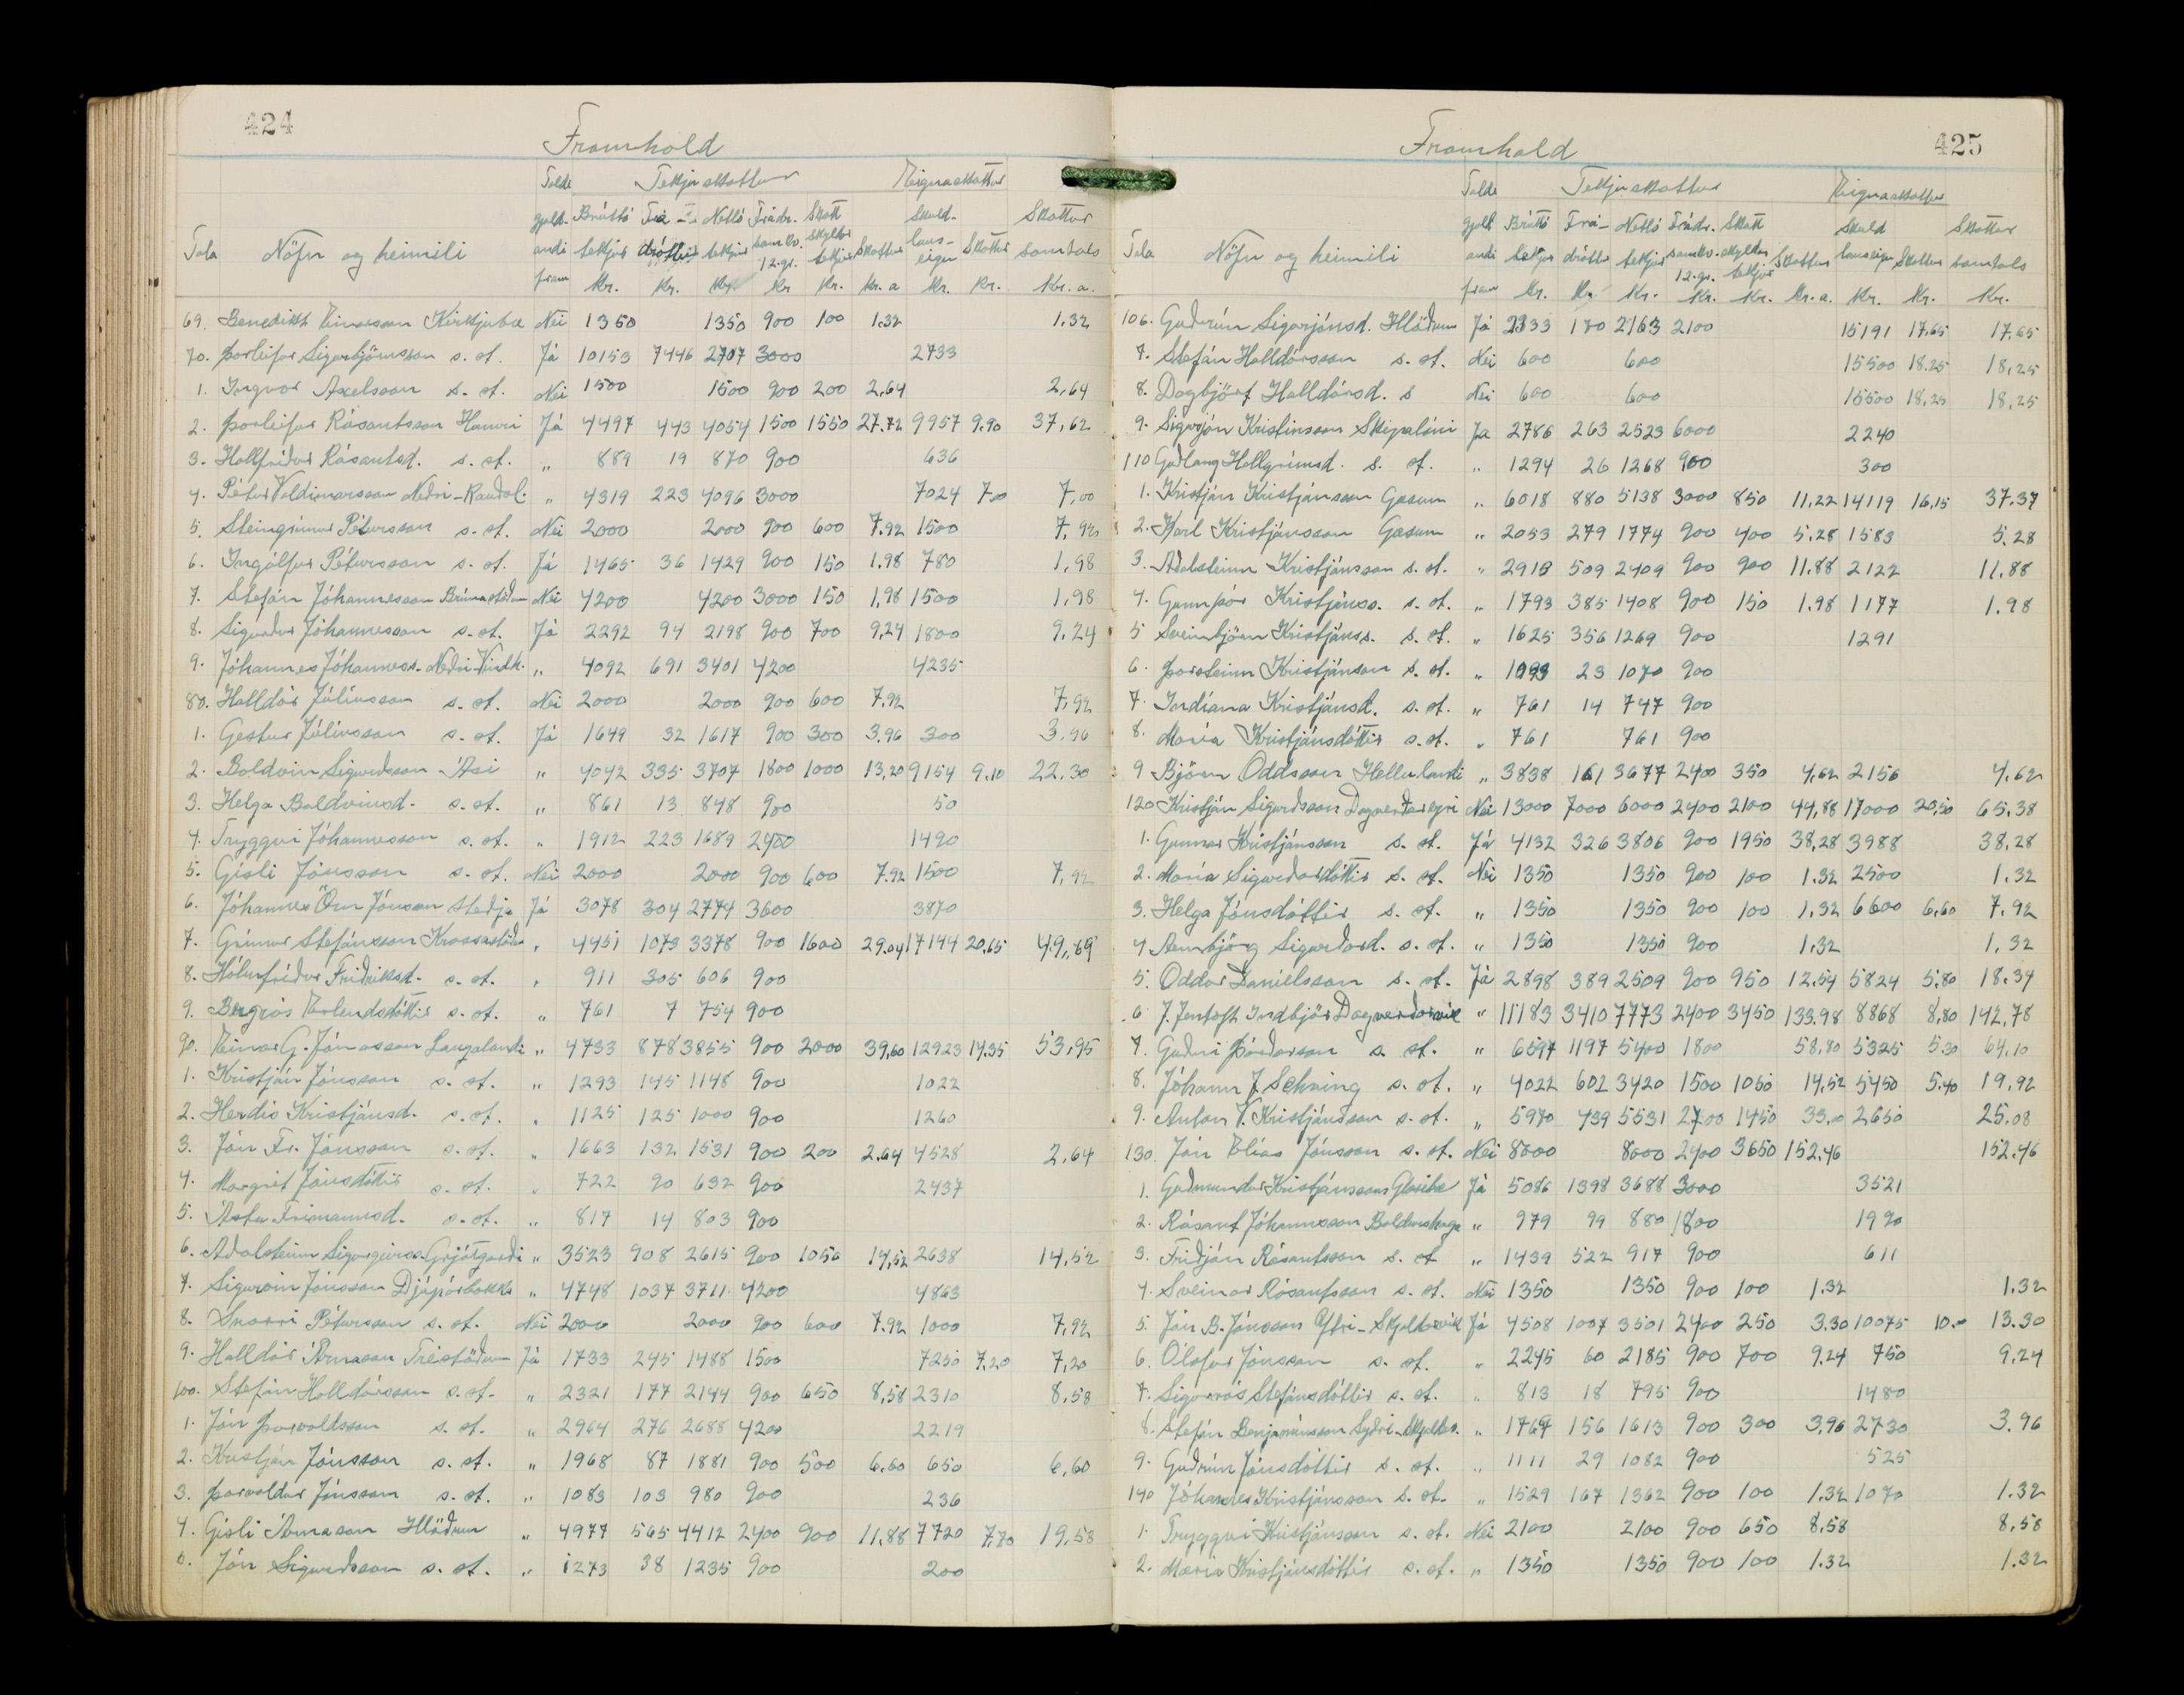 424
Framhald
Talde Tekjuskattur Eignaskattur
gjald- Brúttó Frá- Nettó Frádr. Skatt Skuld- Skattur
Tala Nöfn og heimili andi tekjur dráttur tekjur samkv. skyldar Skattur laus- Skattur samtals
fram 12.gr. tekjur eign
Kr. Kr. Kr. Kr Kr. Kr. a Kr. Kr. Kr. a.
69. Benedikt Einarsson Kirkjubæ Nei 1350 1350 900 100 1.32 1.32
70. Þorleifur Sigurbjörnsson s. st. Já 10153 7446 2707 3000 2733
1. Ingvar Axelsson s. st. Nei 1500 1500 900 200 2,64 2,64
2. Þorleifur Rósantsson Hamri Já 4497 443 4054 1500 1550 27.72 9957 9.90 37,62
3. Hallfríður Rósantsd. s. st. „ 889 19 870 900 636
4. Pétur Valdimarsson Neðri-Rauðal. „ 4319 223 4096 3000 7024 7.00 7,00
5. Steingrímur Pétursson s. st. Nei 2000 2000 900 600 7.92 1500 7,92
6. Ingólfur Pétursson s. st. Já 1465 36 1429 900 150 1.98 780 1,98
7. Stefán Jóhannesson Brúnastöðum Nei 4200 4200 3000 150 1,98 1500 1,98
8. Sigurður Jóhannesson s. st. Já 2292 94 2198 900 700 9,24 1800 9,24
9. Jóhannes Jóhanness. Neðri-Vindh. „ 4092 691 3401 4200 4235
80. Halldór Júlíusson s. st. Nei 2000 2000 900 600 7.92 7,92
1. Gestur Júlíusson s. st. Já 1649 32 1617 900 300 3.96 300 3.96
2. Baldvin Sigurðsson Ási „ 4042 335 3707 1800 1000 13,20 9154 9.10 22,30
3. Helga Baldvinsd. s. st. „ 861 13 848 900 50
4. Tryggvi Jóhannesson s. st. „ 1912 223 1689 2400 1490
5. Gísli Jónsson s. st. Nei 2000 2000 900 600 7.92 1500 7,92
6. Jóhannes Örn Jónsson Steðja Já 3078 304 2774 3600 3870
7. Grímur Stefánsson Krossastöðum „ 4451 1073 3378 900 1600 29.04 17144 20,65 49,69
8. Hólmfríður Friðriksd. s. st. „ 911 305 606 900
9. Bergrós Erlendsdóttir s. st. „ 761 7 754 900
90. Einar G. Jónasson Laugalandi „ 4733 878 3855 900 2000 39,60 12923 14,35 53,95
1. Kristján Jónsson s. st. „ 1293 145 1148 900 1022
2. Herdís Kristjánsd. s. st. „ 1125 125 1000 900 1260
3. Jón Fr. Jónsson s. st. „ 1663 132 1531 900 200 2.64 4528 2,64
4. Margrét Jónsdóttir s. st. „ 722 90 632 900 2437
5. Ásta Frímannsd. s. st. „ 817 14 803 900
6. Aðalsteinn Sigurgeirss. Grjótgarði „ 3523 908 2615 900 1050 14,52 2638 14,52
7. Sigurvin Jónsson Djúpárbakka „ 4748 1037 3711 4200 4863
8. Snorri Pétursson s. st. Nei 2000 2000 900 600 7.92 1000 7,92
9. Halldór Árnason Tréstöðum Já 1733 245 1488 1500 7250 7,20 7,20
100. Stefán Halldórsson s. st. „ 2321 177 2144 900 650 8,58 2310 8,58
1. Jón Þorvaldsson s. st. „ 2964 276 2688 4200 2219
2. Kristján Jónsson s. st. „ 1968 87 1881 900 500 6.60 650 6,60
3. Þorvaldur Jónsson s. st. „ 1083 103 980 900 236
4. Gísli Árnason Hlöðum „ 4977 565 4412 2400 900 11.88 7720 7,70 19,58
5. Jón Sigurðsson s. st. „ 1273 38 1235 900 200
425
Framhald
Talde Tekjuskattur Eignaskattur
gjald Brúttó Frá- Nettó Frádr. Skatt Skuld Skattur
Tala Nöfn og heimili andi tekjur dráttur tekjur samkv. skyldar Skattur laus eign Skattur samtals
fram Kr. Kr. Kr. 12.gr. Kr. tekjur Kr. Kr. a. Kr. Kr. Kr.
106. Guðrún Sigurjónsd. Hlöðum Já 2333 170 2163 2100 15191 17.65 17,65
7. Stefán Halldórsson s. st. Nei 600 600 15500 18.25 18,25
8. Dagbjört Halldórsd. s Nei 600 600 15500 18,25 18,25
9. Sigurjón Kristinsson Skipalóni Já 2786 263 2523 6000 2240
110 Guðlaug Hallgrímsd. s. st. „ 1294 26 1268 900 300
1. Kristján Kristjánsson Gásum „ 6018 880 5138 3000 850 11,22 14119 16,15 37.37
2. Karl Kristjánsson Gásum „ 2053 279 1774 900 400 5.28 1583 5.28
3. Aðalsteinn Kristjánsson s. st. „ 2918 509 2409 900 900 11.88 2122 11.88
4. Gunnþór Kristjánss. s. st. „ 1793 385 1408 900 150 1.98 1177 1.98
5 Sveinbjörn Kristjánss. s. st. „ 1625 356 1269 900 1291
6. Þorsteinn Kristjánsson s. st. „ 1093 23 1070 900
7. Jordíana Kristjánsd. s. st. „ 761 14 747 900
8. María Kristjánsdóttir s. st. „ 761 761 900
9 Björn Oddsson Hellulandi „ 3838 161 3677 2400 350 4,62 2156 4,62
120 Kristján Sigurðsson Dagverðareyri Nei 13000 7000 6000 2400 2100 44,88 17000 20,50 65.38
1. Gunnar Kristjánsson s. st. Já 4132 326 3806 900 1950 38,28 3988 38,28
2. María Sigurðardóttir s. st. Nei 1350 1350 900 100 1.32 2500 1.32
3. Helga Jónsdóttir s. st. „ 1350 1350 900 100 1,32 6600 6,60 7.92
4 Arnbjörg Sigurðard. s. st. „ 1350 1350 900 1.32 1,32
5. Oddur Daníelsson s. st. Já 2898 389 2509 900 950 12.54 5824 5,80 18.34
6 J. Jentoft Indbjör Dagverðarvík „ 11183 3410 7773 2400 3450 133.98 8868 8,80 142,78
7. Guðni Þórðarson s. st. „ 6597 1197 5400 1800 58,80 5325 5.30 64,10
8. Jóhann J. Schving s. st. „ 4022 602 3420 1500 1050 14,52 5450 5.40 19,92
9. Anton V. Kristjánsson s. st. „ 5970 439 5531 2700 1450 33,00 2650 25,08
130. Jón Elías Jónsson s. st. Nei 8000 8000 2400 3650 152.46 152.46
1. Guðmundur Kristjánsson Glæsibæ Já 5086 1398 3688 3000 3521
2. Rósant Jóhannsson Baldurshaga „ 979 99 880 1800 1990
3. Friðjón Rósantsson s. st „ 1439 522 917 900 611
4. Sveinar Rósantsson s. st. Nei 1350 1350 900 100 1.32 1.32
5. Jón B. Jónsson Ytri-Skjaldarvík Já 4508 1007 3501 2400 250 3.30 10075 10.00 13.30
6. Ólafur Jónsson s. st. „ 2245 60 2185 900 700 9.24 750 9,24
7. Sigurrós Stefánsdóttir s. st. „ 813 18 795 900 1480
8. Stefán Benjamínsson Syðri-Skjaldarv. „ 1769 156 1613 900 300 3,96 2730 3.96
9. Guðrún Jónsdóttir s. st. „ 1111 29 1082 900 525
140 Jóhannes Kristjánsson s. st. „ 1529 167 1362 900 100 1.32 1070 1.32
1. Tryggvi Kristjánsson s. st. Nei 2100 2100 900 650 8,58 8,58
2. María Kristjánsdóttir s. st. „ 1350 1350 900 100 1.32 1.32